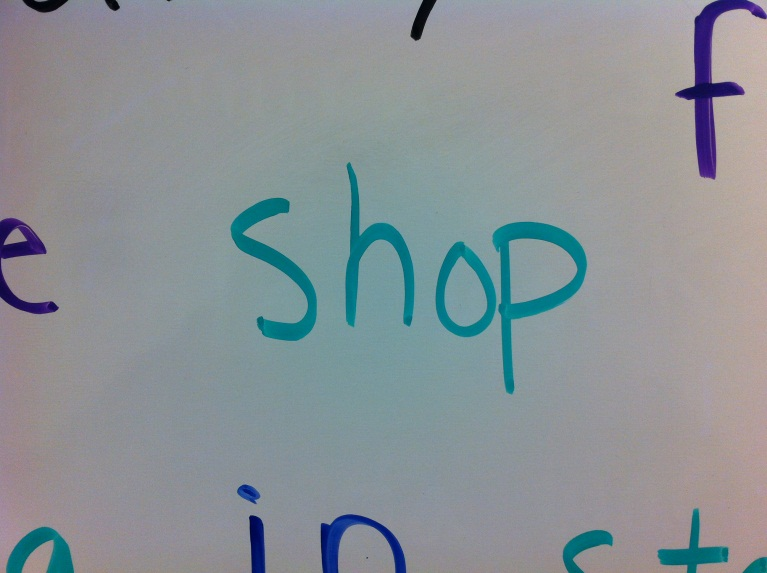 f
e
shop
in st